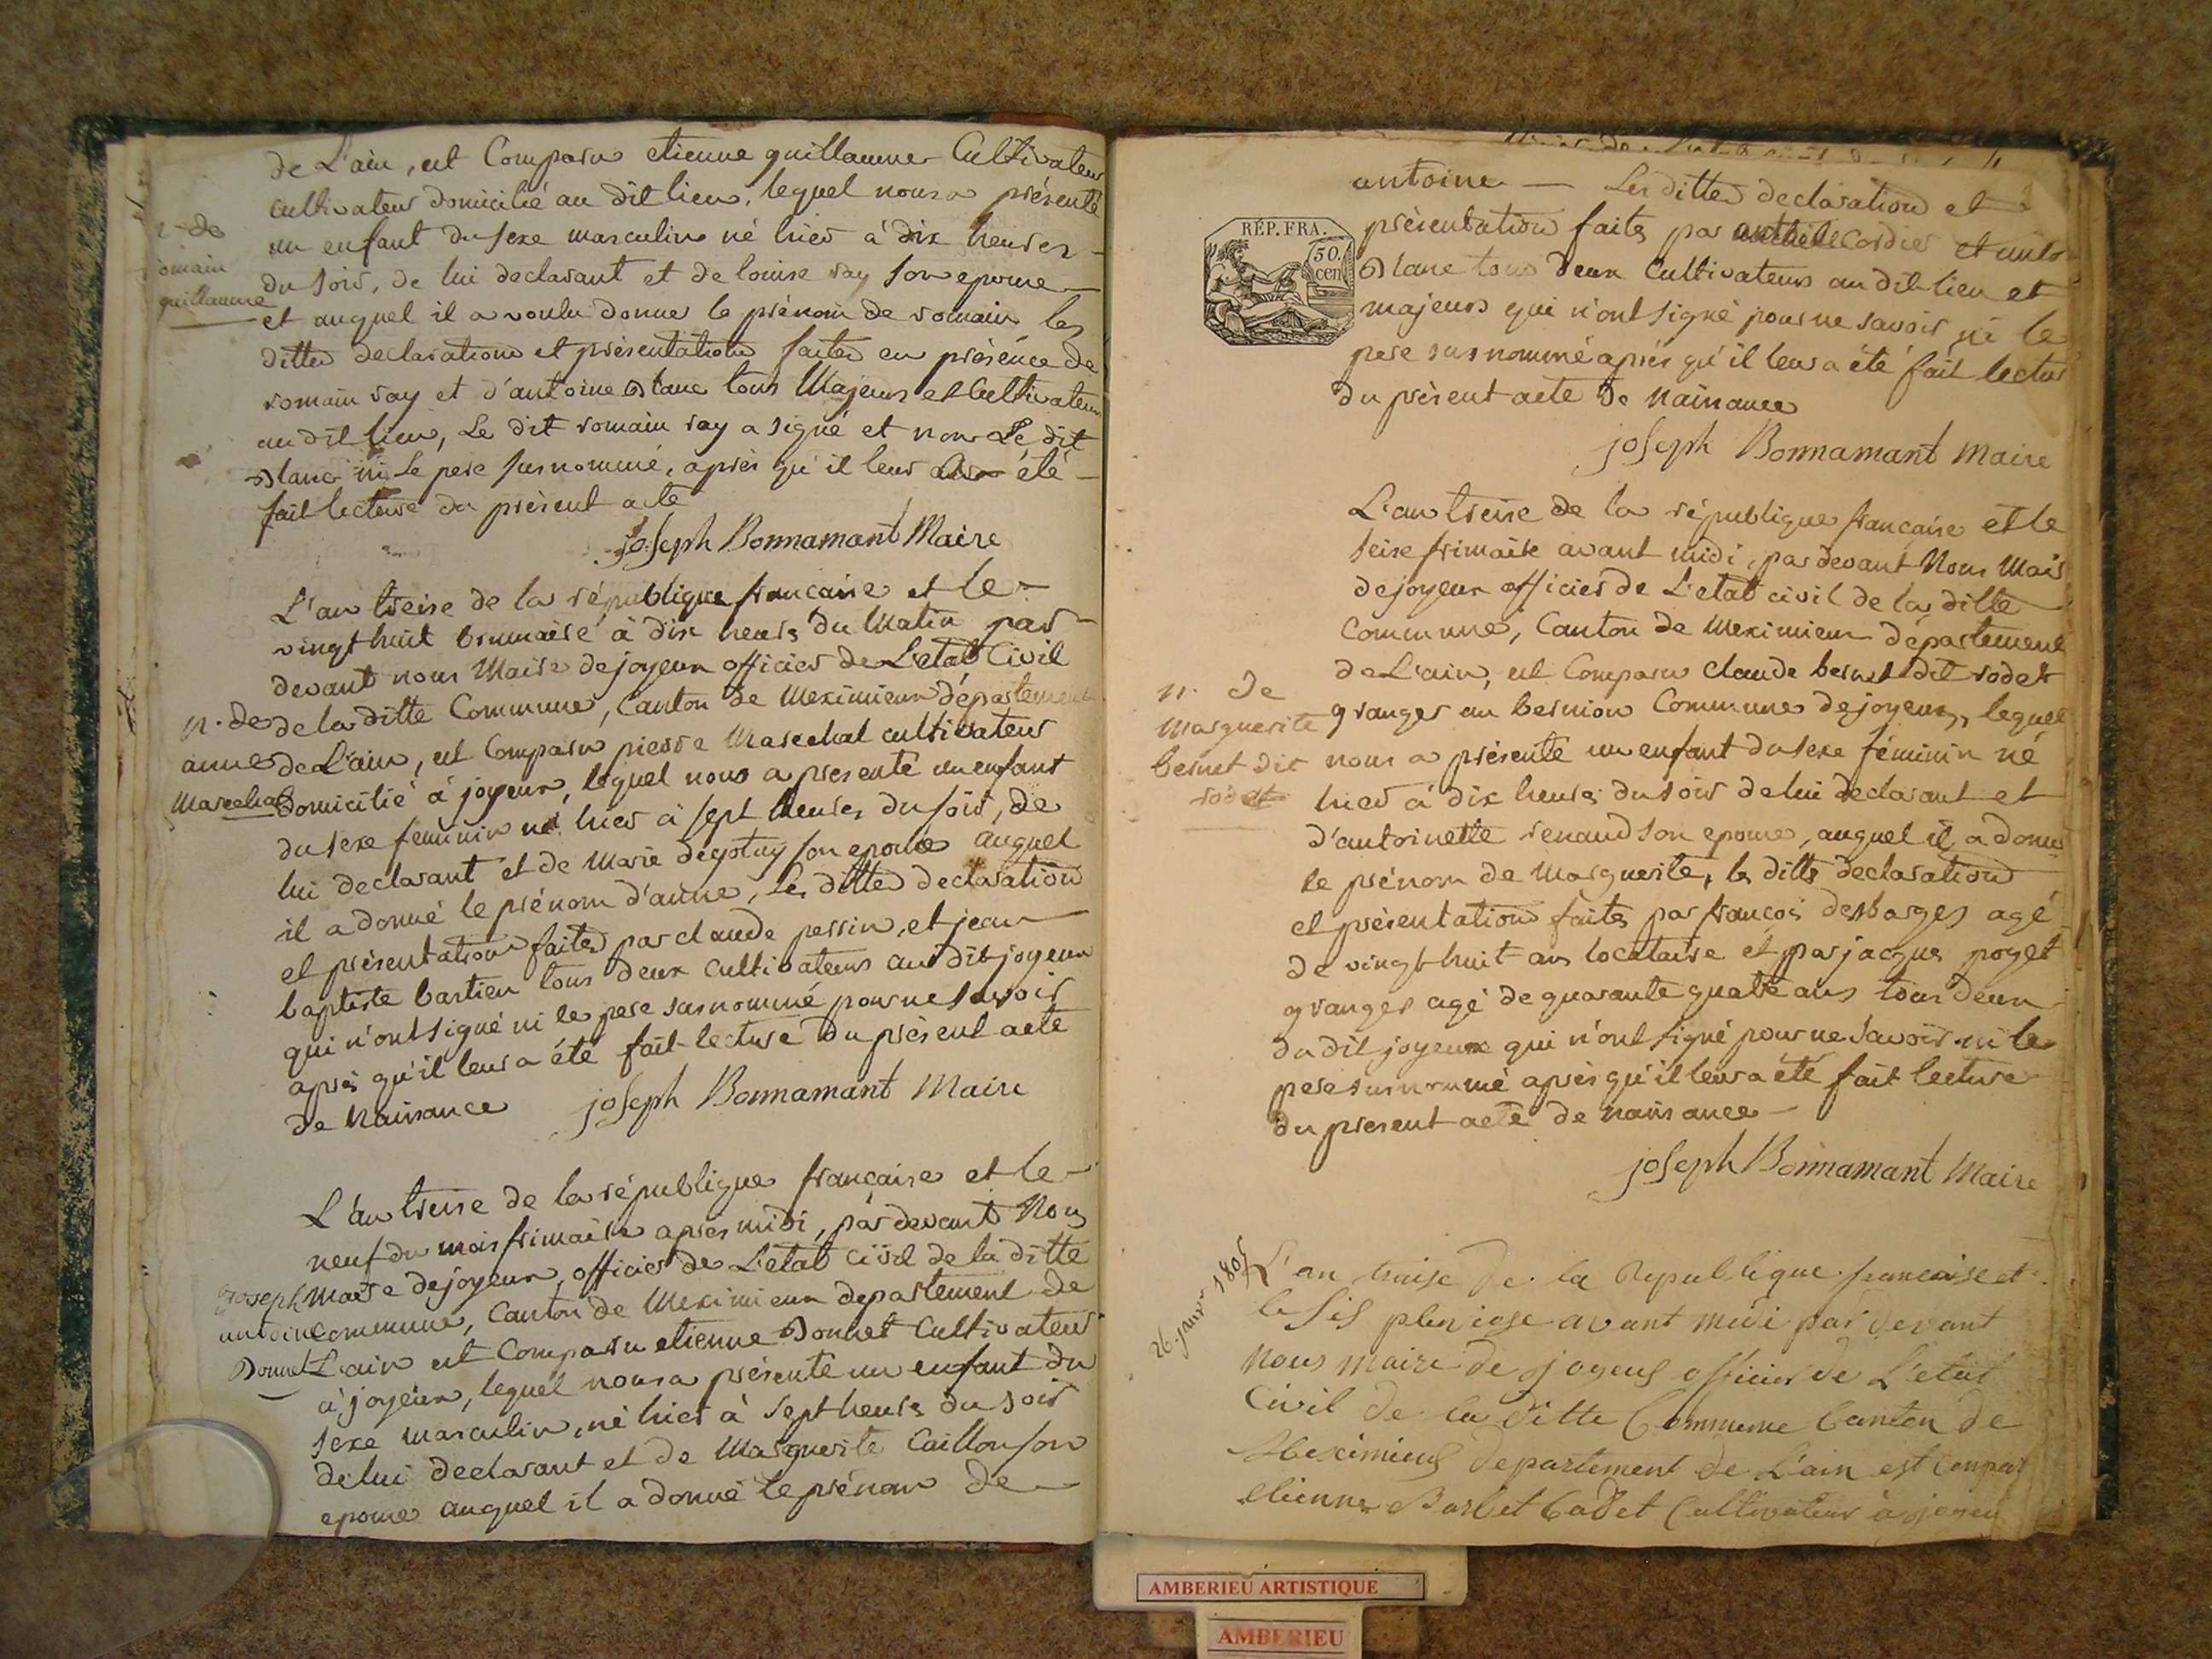 de L'ain, est Comparu etienne guillaume Cultivateur
cultivateur domicilié au dit lieu, lequel nous a présenté
un enfant du sexe masculin né hier à dix heures
du soir, de lui declarant et de louise ray son epouse
et auquel il a voulu donner le prénom de romain, les
dittes declarations et présentations faites en présence de
romain ray et d'antoine Blanc tous Majeurs et Cultivateurs
au dit lieu, Le dit romain ray a signé et non Le dit
Blanc ni Le pere susnommé, après qu'il leur a été
fait lecture du présent acte
joseph Bonnamant Maire
n. de
romain
guillaume
L'an treise de la république francaise et le
vingt huit brumaire à dix heures du Matin par
devant nous Maire de joyeux officier de L'etat Civil
de la ditte Commune, Canton de Meximieux département
de L'ain, est Comparu pierre Marechal cultivateur
domicilié à joyeux, lequel nous a presenté un enfant
du sexe feminin né hier à sept heures du soir, de
lui declarant et de Marie degotuy son epouse auquel
il a donné le prénom d'anne, Les dittes declaration
et présentation faites par claude perrin, et jean
baptiste bastien tous deux cultivateurs au dit joyeux
qui n'ont signé ni le pere susnommé pour ne savoir
après qu'il leur a été fait lecture du présent acte
de Naissance joseph Bonnamant Maire
n. de
anne
Marechal
L'an treise de la république française et le
neuf du mois frimaire après midi, par devant Nous
Maire de joyeux, officier de L'etat civil de la ditte
commune, Canton de Meximieux departement de
L'ain est Comparu etienne Donnet Cultivateur
à joyeux, lequel nous a présenté un enfant du
sexe masculin, né hier à sept heures du soir
de lui declarant et de Marguerite Caillon son
epouse auquel il a donné le prénom de
Joseph
antoine
Donnet
antoine — Les dittes declaration et
présentation faites par Cordier et
Blanc tous deux Cultivateurs au dit lieu et
majeurs qui n'ont signé pour ne savoir ni le
pere susnommé après qu'il leur a été fait lectur
du présent acte de Naissance
joseph Bonnamant Maire
RÉP. FRA.
50.
cen
L'an treise de la république française et le
seise frimaire avant midi, par devant Nous Mair
de joyeux officier de L'etat civil de la ditte
Commune, Canton de Meximieux département
de L'ain, est Comparu Claude bernet dit rodet
granger au bernion Commune de joyeux, lequel
nous a présenté un enfant du sexe féminin né
hier à dix heures du soir de lui declarant et
d'antoinette renaud son epouse, auquel il a donné
le prénom de Marguerite, les dittes declaration
et présentation faites par françois desbarges agé
de vingt huit ans locataire et par jacques poget
granger agé de quarante quatre ans tous deux
du dit joyeux qui n'ont signé pour ne savoir ni le
pere susnommé après qu'il leur a été fait lecture
du present acte de naissance
joseph Bonnamant Maire
n. de
Marguerite
bernet dit
rodet
26. janvr 1805
L'an traise de la Republique francaise et
le sis pluviose avant midi par devant
Nous maire de joyeux officier de L'etat
Civil de la ditte Commune Canton de
Meximieux departement de L'ain est Compar
etienne Barbet Cadet Cultivateur à joyeu
AMBERIEU ARTISTIQUE
AMBERIEU